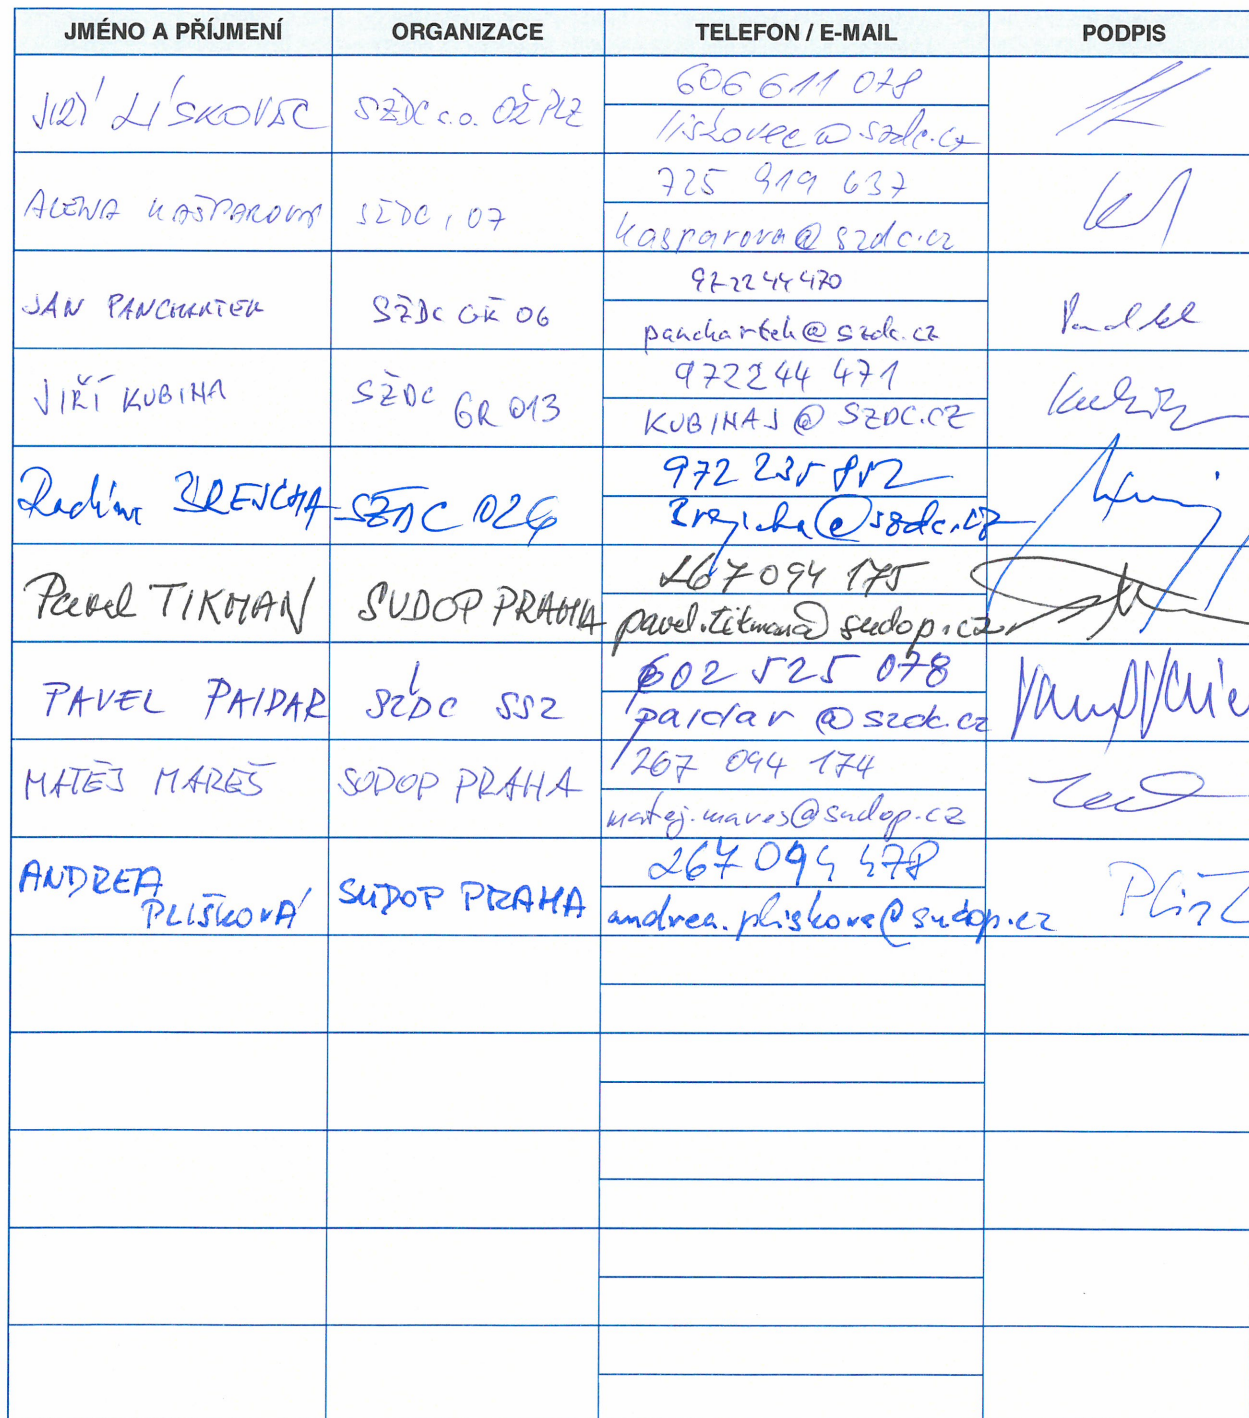 JMÉNO A PŘÍJMENÍ ORGANIZACE TELEFON / E-MAIL PODPIS
JIŘÍ LÍSKOVEC SŽDC s.o. OŘ PLZ 606 611 078
liskovec@szdc.cz
ALENA KAŠPAROVÁ SŽDC, 07 725 919 637
kasparova@szdc.cz
JAN PANCHARTEK SŽDC GŘ 06 972244470
panchartek@szdc.cz
JIŘÍ KUBINA SŽDC GŘ O13 972244 471
KUBINAJ@SZDC.CZ
Radim BREJCHA SŽDC 026 972 235 852
Brejcha@szdc.cz
Pavel TIKMAN SUDOP PRAHA 267 094 175
pavel.tikman@sudop.cz
PAVEL PAIDAR SŽDC SSZ 602 525 078
paidar@szdc.cz
MATĚJ MAREŠ SUDOP PRAHA 267 094 174
matej.mares@sudop.cz
ANDREA PLIŠKOVÁ SUDOP PRAHA 267 094 478
andrea.pliskova@sudop.cz